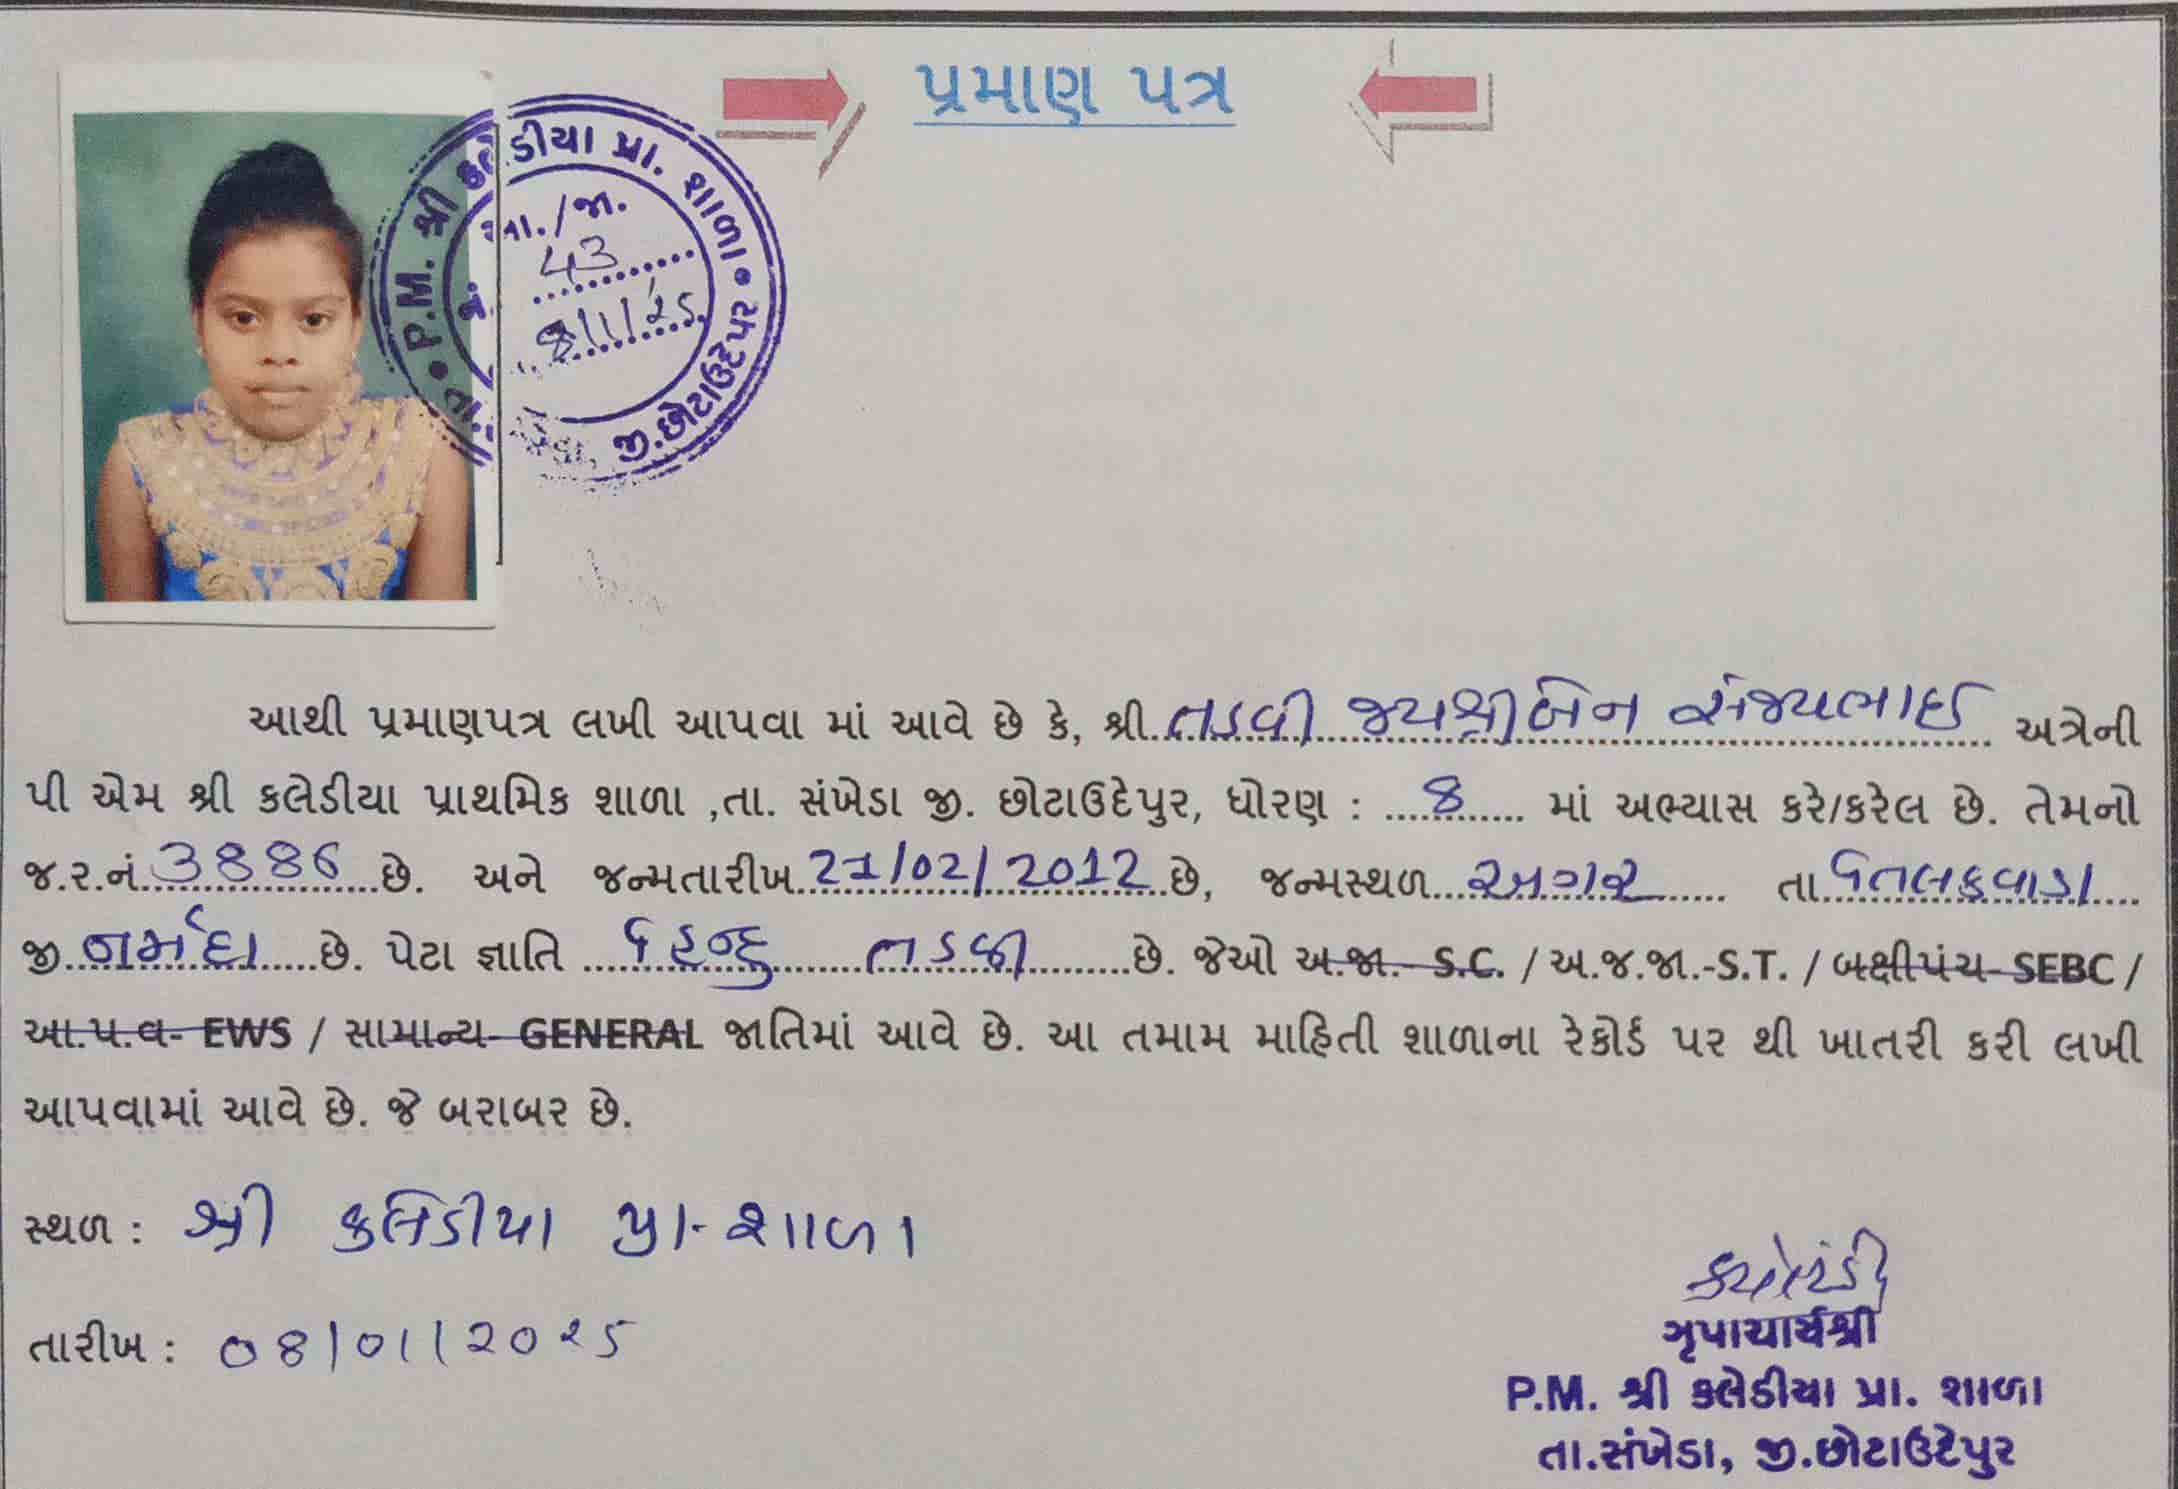 પ્રમાણ પત્ર
P.M. શ્રી કલેડીયા પ્રા. શાળા
જી.છોટાઉદેપુર
જા./જા.
43
8/1/25
આથી પ્રમાણપત્ર લખી આપવા માં આવે છે કે, શ્રી તડવી જયશ્રીબેન સંજયભાઈ અત્રેની
પી એમ શ્રી કલેડીયા પ્રાથમિક શાળા ,તા. સંખેડા જી. છોટાઉદેપુર, ધોરણ : 8 માં અભ્યાસ કરે/કરેલ છે. તેમનો
જ.ર.નં 3886 છે. અને જન્મતારીખ 21/02/2012 છે, જન્મસ્થળ અગર તા તિલકવાડા
જી નર્મદા છે. પેટા જ્ઞાતિ હિન્દુ તડવી છે. જેઓ અ.જા.- S.C. / અ.જ.જા.-S.T. / બક્ષીપંચ- SEBC /
આ.પ.વ- EWS / સામાન્ય- GENERAL જાતિમાં આવે છે. આ તમામ માહિતી શાળાના રેકોર્ડ પર થી ખાતરી કરી લખી
આપવામાં આવે છે. જે બરાબર છે.
સ્થળ : શ્રી કલેડીયા પ્રા-શાળા
તારીખ : 08/01/2025
P.M. શ્રી કલેડીયા પ્રા. શાળા
તા.સંખેડા, જી.છોટાઉદેપુર